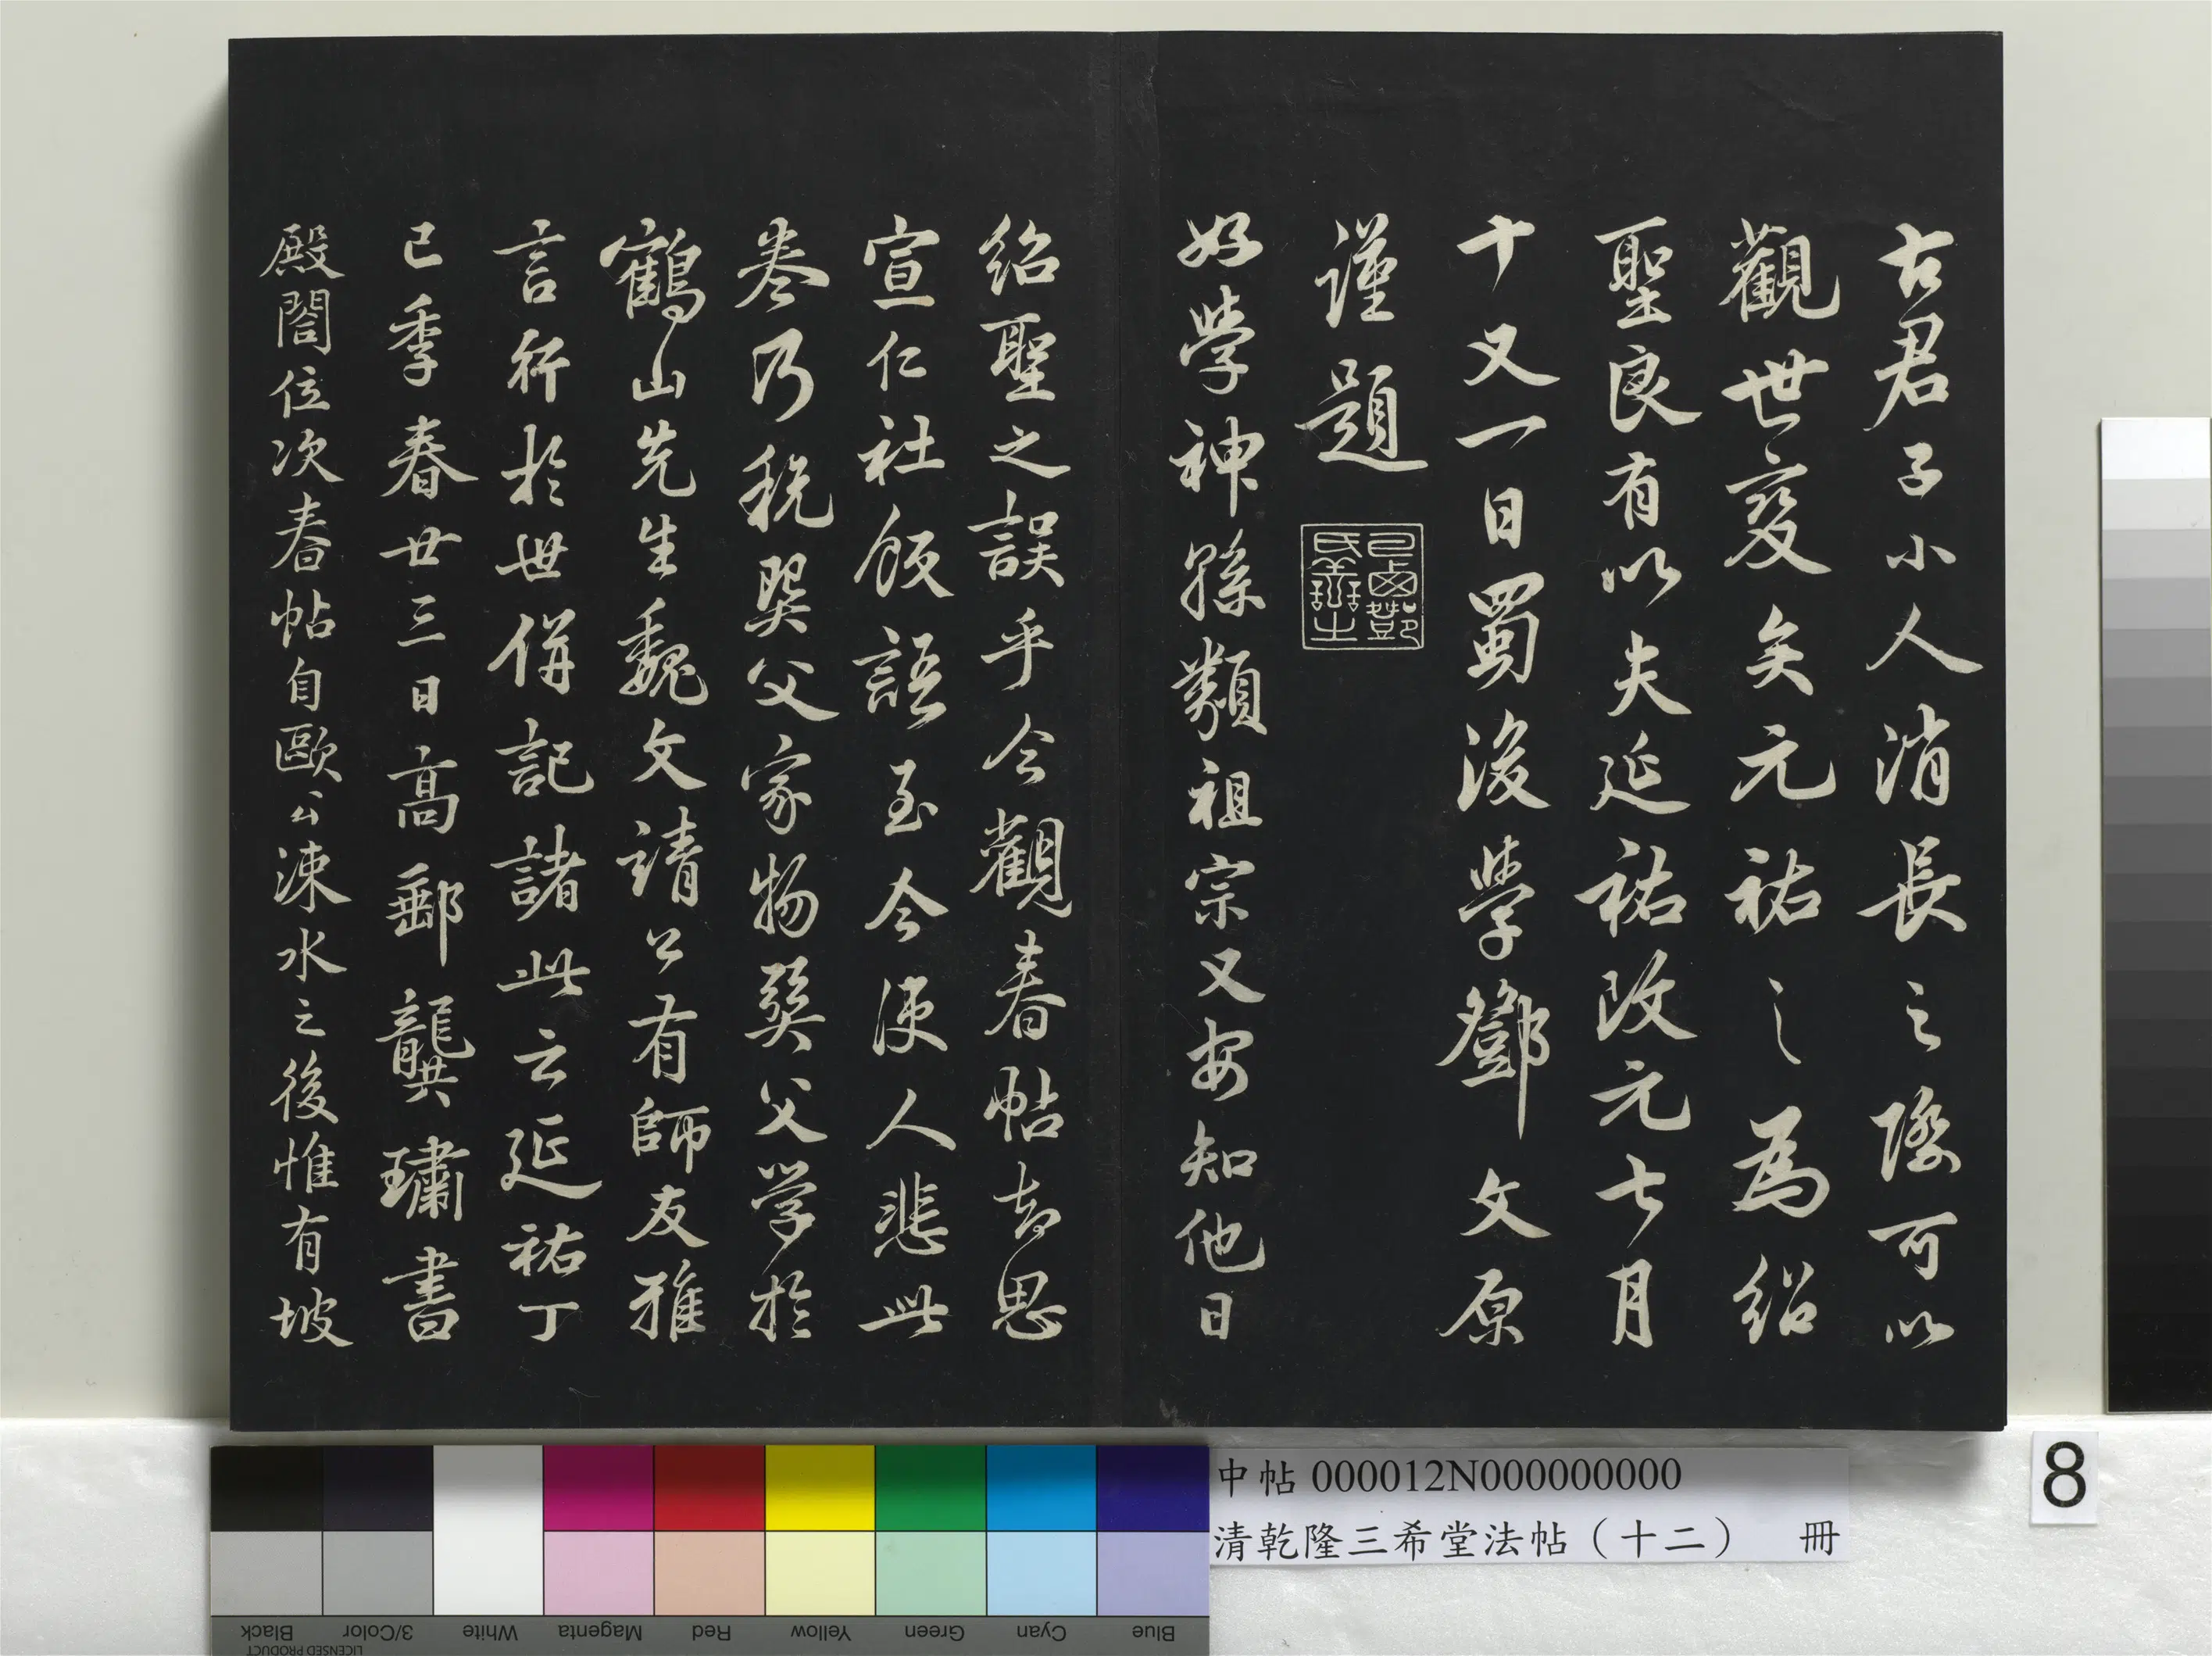 古君子小人消長之際可以
觀世變矣元祐之為紹
聖良有以夫延祐改元七月
十又一日蜀後學鄧文原
謹題
巴西鄧氏善之
好學神孫類祖宗又安知他日
紹聖之誤乎今觀春帖去思
宣仁社飯語至今使人悲此
卷乃稅巽父家物巽父学於
鶴山先生魏文靖公有師友雅
言行於世併記諸此云延祐丁
巳季春廿三日高郵龔璛書
殿閣位次春帖自歐公涑水之後惟有坡
中帖 000012N000000000
清乾隆三希堂法帖（十二） 冊
8
Black
3/Color
White
Magenta
Red
Yellow
Green
Cyan
Blue
LICENSED PRODUCT